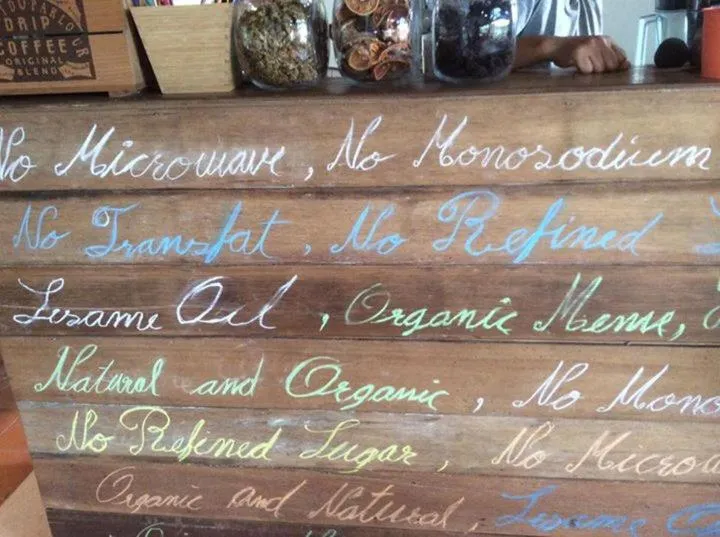 DRIP
COFFEE
ORIGINAL
BLEND
No Microwave, No Monosodium
No Transfat, No Refined
Sesame Oil, Organic Menu,
Natural and Organic, No Mono
No Refined Sugar, No Microw
Organic and Natural, Sesame O